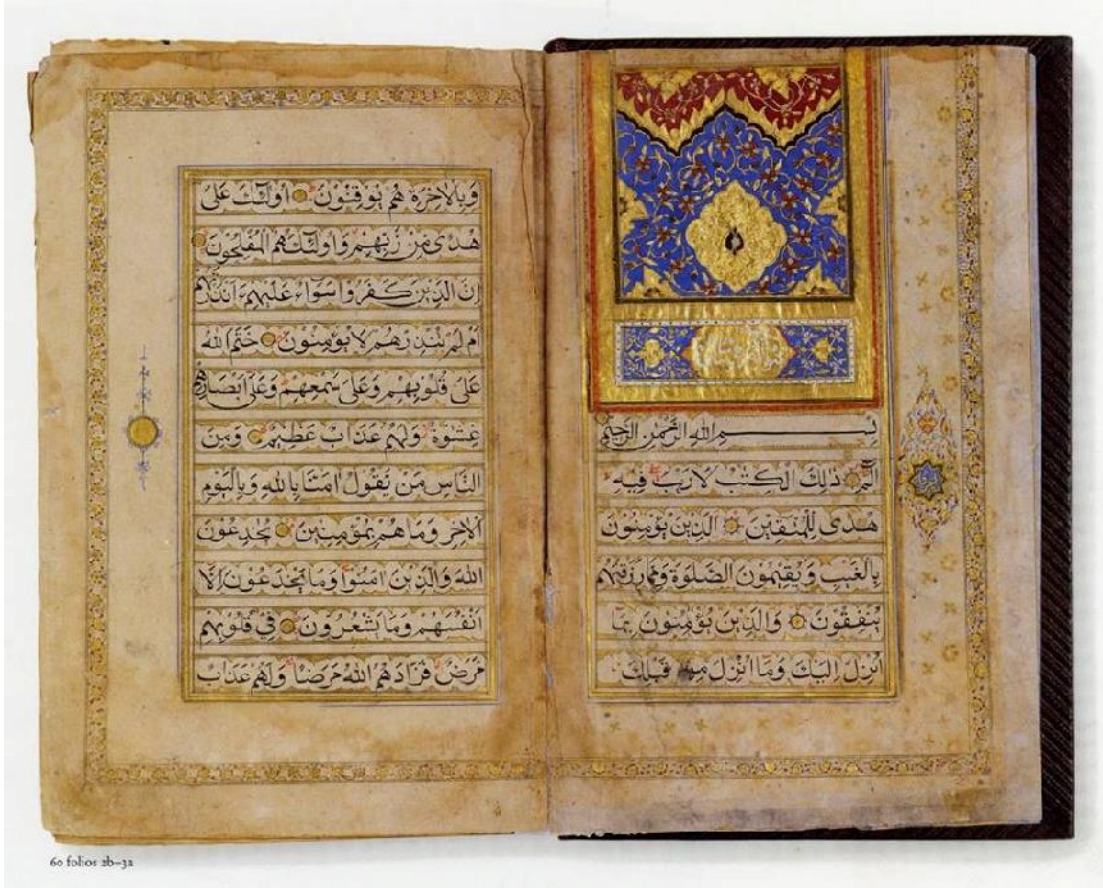 بسم الله الرحمن الرحيم
الم ذلك الكتب لا ريب فيه
هدى للمتقين الذين يؤمنون
بالغيب ويقيمون الصلوة ومما رزقنهم
ينفقون والذين يؤمنون بما
انزل اليك وما انزل من قبلك
وبالاخرة هم يوقنون اولئك على
هدى من ربهم واولئك هم المفلحون
ان الذين كفروا سواء عليهم ءانذرتهم
ام لم تنذرهم لا يؤمنون ختم الله
على قلوبهم وعلى سمعهم وعلى ابصارهم
غشوة ولهم عذاب عظيم ومن
الناس من يقول امنا بالله وباليوم
الاخر وما هم بمؤمنين يخدعون
الله والذين امنوا وما يخدعون الا
انفسهم وما يشعرون في قلوبهم
مرض فزادهم الله مرضا ولهم عذاب
60 folios 2b–3a